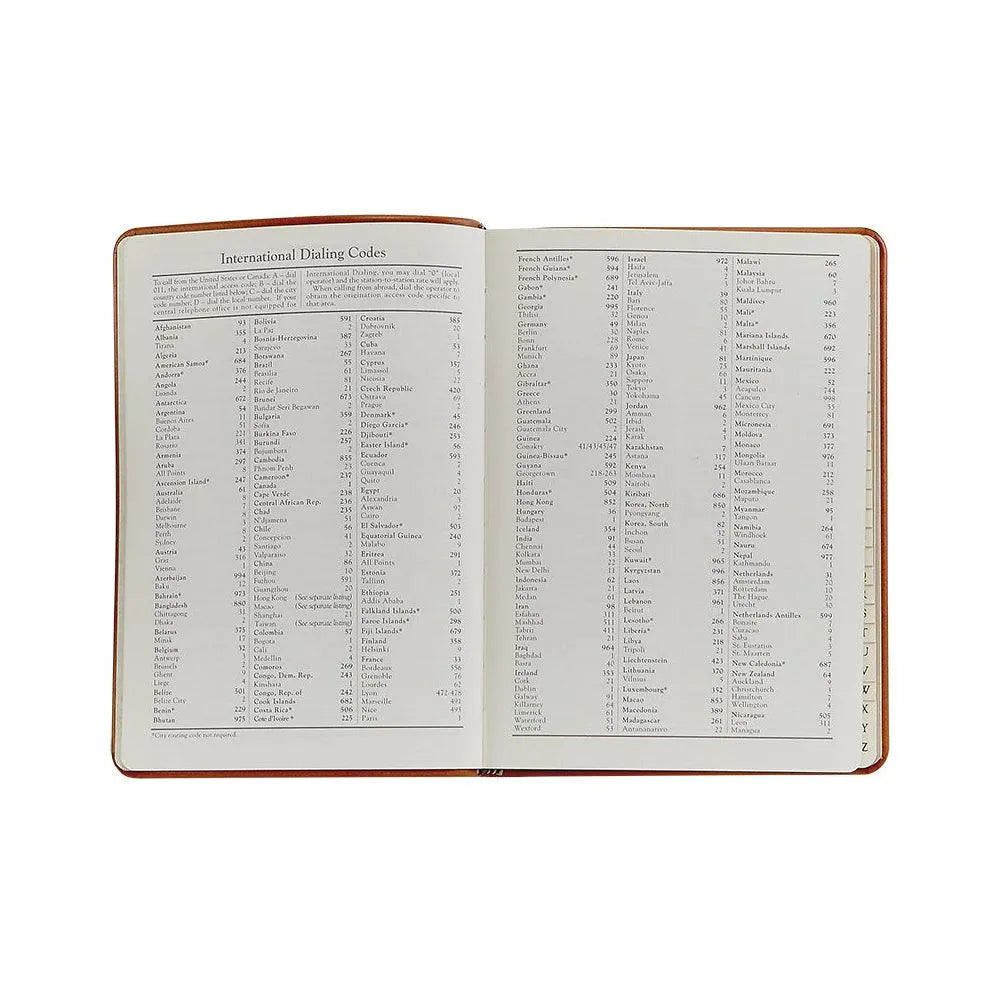 International Dialing Codes
To call from the United States or Canada: A – dial
011, the international access code; B – dial the
country code number listed below; C – dial the city
code number; D – dial the local number. If your
central telephone office is not equipped for
International Dialing, you may dial "0" (local
operator) and the station-to-station rate will apply.
When calling from abroad, dial the operator to
obtain the origination access code specific to
that area.
Afghanistan 93
Albania 355
Tirana 4
Algeria 213
American Samoa* 684
Andorra* 376
Angola 244
Luanda 2
Antarctica 672
Argentina 54
Buenos Aires 11
Cordoba 51
La Plaza 221
Rosario 341
Armenia 374
Aruba 297
All Points 8
Ascension Island* 247
Australia 61
Adelaide 8
Brisbane 7
Darwin 8
Melbourne 3
Perth 8
Sydney 2
Austria 43
Graz 316
Vienna 1
Azerbaijan 994
Baku 12
Bahrain* 973
Bangladesh 880
Chittagong 31
Dhaka 2
Belarus 375
Minsk 17
Belgium 32
Antwerp 3
Brussels 2
Ghent 9
Liege 4
Belize 501
Belize City 2
Benin* 229
Bhutan 975
Bolivia 591
La Paz 2
Bosnia-Herzegovina 387
Sarajevo 33
Botswana 267
Brazil 55
Brasilia 61
Recife 81
Rio de Janeiro 21
Brunei 673
Bandar Seri Begawan 2
Bulgaria 359
Sofia 2
Burkina Faso 226
Burundi 257
Bujumbura 2
Cambodia 855
Phnom Penh 23
Cameroon* 237
Canada 1
Cape Verde 238
Central African Rep. 236
Chad 235
N'Djamena 51
Chile 56
Concepcion 41
Santiago 2
Valparaiso 32
China 86
Beijing 10
Fuzhou 591
Guangzhou 20
Hong Kong (See separate listing)
Macao (See separate listing)
Shanghai 21
Taiwan (See separate listing)
Colombia 57
Bogota 1
Cali 2
Medellin 4
Comoros 269
Congo, Dem. Rep. 243
Kinshasa 1
Congo, Rep. of 242
Cook Islands 682
Costa Rica* 506
Cote d'Ivoire* 225
Croatia 385
Dubrovnik 20
Zagreb 1
Cuba 53
Havana 7
Cyprus 357
Limassol 5
Nicosia 22
Czech Republic 420
Ostrava 69
Prague 2
Denmark* 45
Diego Garcia* 246
Djibouti* 253
Easter Island* 56
Ecuador 593
Cuenca 7
Guayaquil 4
Quito 2
Egypt 20
Alexandria 3
Aswan 97
Cairo 2
El Salvador* 503
Equatorial Guinea 240
Malabo 9
Eritrea 291
All Points 1
Estonia 372
Tallinn 2
Ethiopia 251
Addis Ababa 1
Falkland Islands* 500
Faroe Islands* 298
Fiji Islands* 679
Finland 358
Helsinki 9
France 33
Bordeaux 556
Grenoble 76
Lourdes 62
Lyon 472-478
Marseille 491
Nice 493
Paris 1
*City routing code not required.
French Antilles* 596
French Guiana* 594
French Polynesia* 689
Gabon* 241
Gambia* 220
Georgia 995
Tbilisi 32
Germany 49
Berlin 30
Bonn 228
Frankfurt 69
Munich 89
Ghana 233
Accra 21
Gibraltar* 350
Greece 30
Athens 21
Greenland 299
Guatemala 502
Guatemala City 2
Guinea 224
Conakry 41/43/45/47
Guinea-Bissau* 245
Guyana 592
Georgetown 218-263
Haiti 509
Honduras* 504
Hong Kong 852
Hungary 36
Budapest 1
Iceland 354
India 91
Chennai 44
Kolkata 33
Mumbai 22
New Delhi 11
Indonesia 62
Jakarta 21
Medan 61
Iran 98
Esfahan 311
Mashhad 511
Tabriz 411
Tehran 21
Iraq 964
Baghdad 1
Basra 40
Ireland 353
Cork 21
Dublin 1
Galway 91
Killarney 64
Limerick 61
Waterford 51
Wexford 53
Israel 972
Haifa 4
Jerusalem 2
Tel Aviv-Jaffa 3
Italy 39
Bari 80
Florence 55
Genoa 10
Milan 2
Naples 81
Rome 6
Venice 41
Japan 81
Kyoto 75
Osaka 66
Sapporo 11
Tokyo 3
Yokohama 45
Jordan 962
Amman 6
Irbid 2
Jerash 4
Karak 3
Kazakhstan 7
Astana 317
Kenya 254
Mombasa 11
Nairobi 2
Kiribati 686
Korea, North 850
Pyongyang 2
Korea, South 82
Inchon 32
Busan 51
Seoul 2
Kuwait* 965
Kyrgyzstan 996
Laos 856
Latvia 371
Lebanon 961
Beirut 1
Lesotho* 266
Liberia* 231
Libya 218
Tripoli 21
Liechtenstein 423
Lithuania 370
Vilnius 5
Luxembourg* 352
Macao 853
Macedonia 389
Madagascar 261
Antananarivo 22
Malawi 265
Malaysia 60
Johor Bahru 7
Kuala Lumpur 3
Maldives 960
Mali* 223
Malta* 356
Mariana Islands 670
Marshall Islands 692
Martinique 596
Mauritania 222
Mexico 52
Acapulco 744
Cancun 998
Mexico City 55
Monterrey 81
Micronesia 691
Moldova 373
Monaco 377
Mongolia 976
Ulaan Baatar 11
Morocco 212
Casablanca 22
Mozambique 258
Maputo 21
Myanmar 95
Yangon 1
Namibia 264
Windhoek 61
Nauru 674
Nepal 977
Kathmandu 1
Netherlands 31
Amsterdam 20
Rotterdam 10
The Hague 70
Utrecht 30
Netherlands Antilles 599
Bonaire 7
Curacao 9
Saba 4
St. Eustatius 3
St. Maarten 5
New Caledonia* 687
New Zealand 64
Auckland 9
Christchurch 3
Hamilton 7
Wellington 4
Nicaragua 505
Leon 311
Managua 2
S
T
U
V
W
X
Y
Z